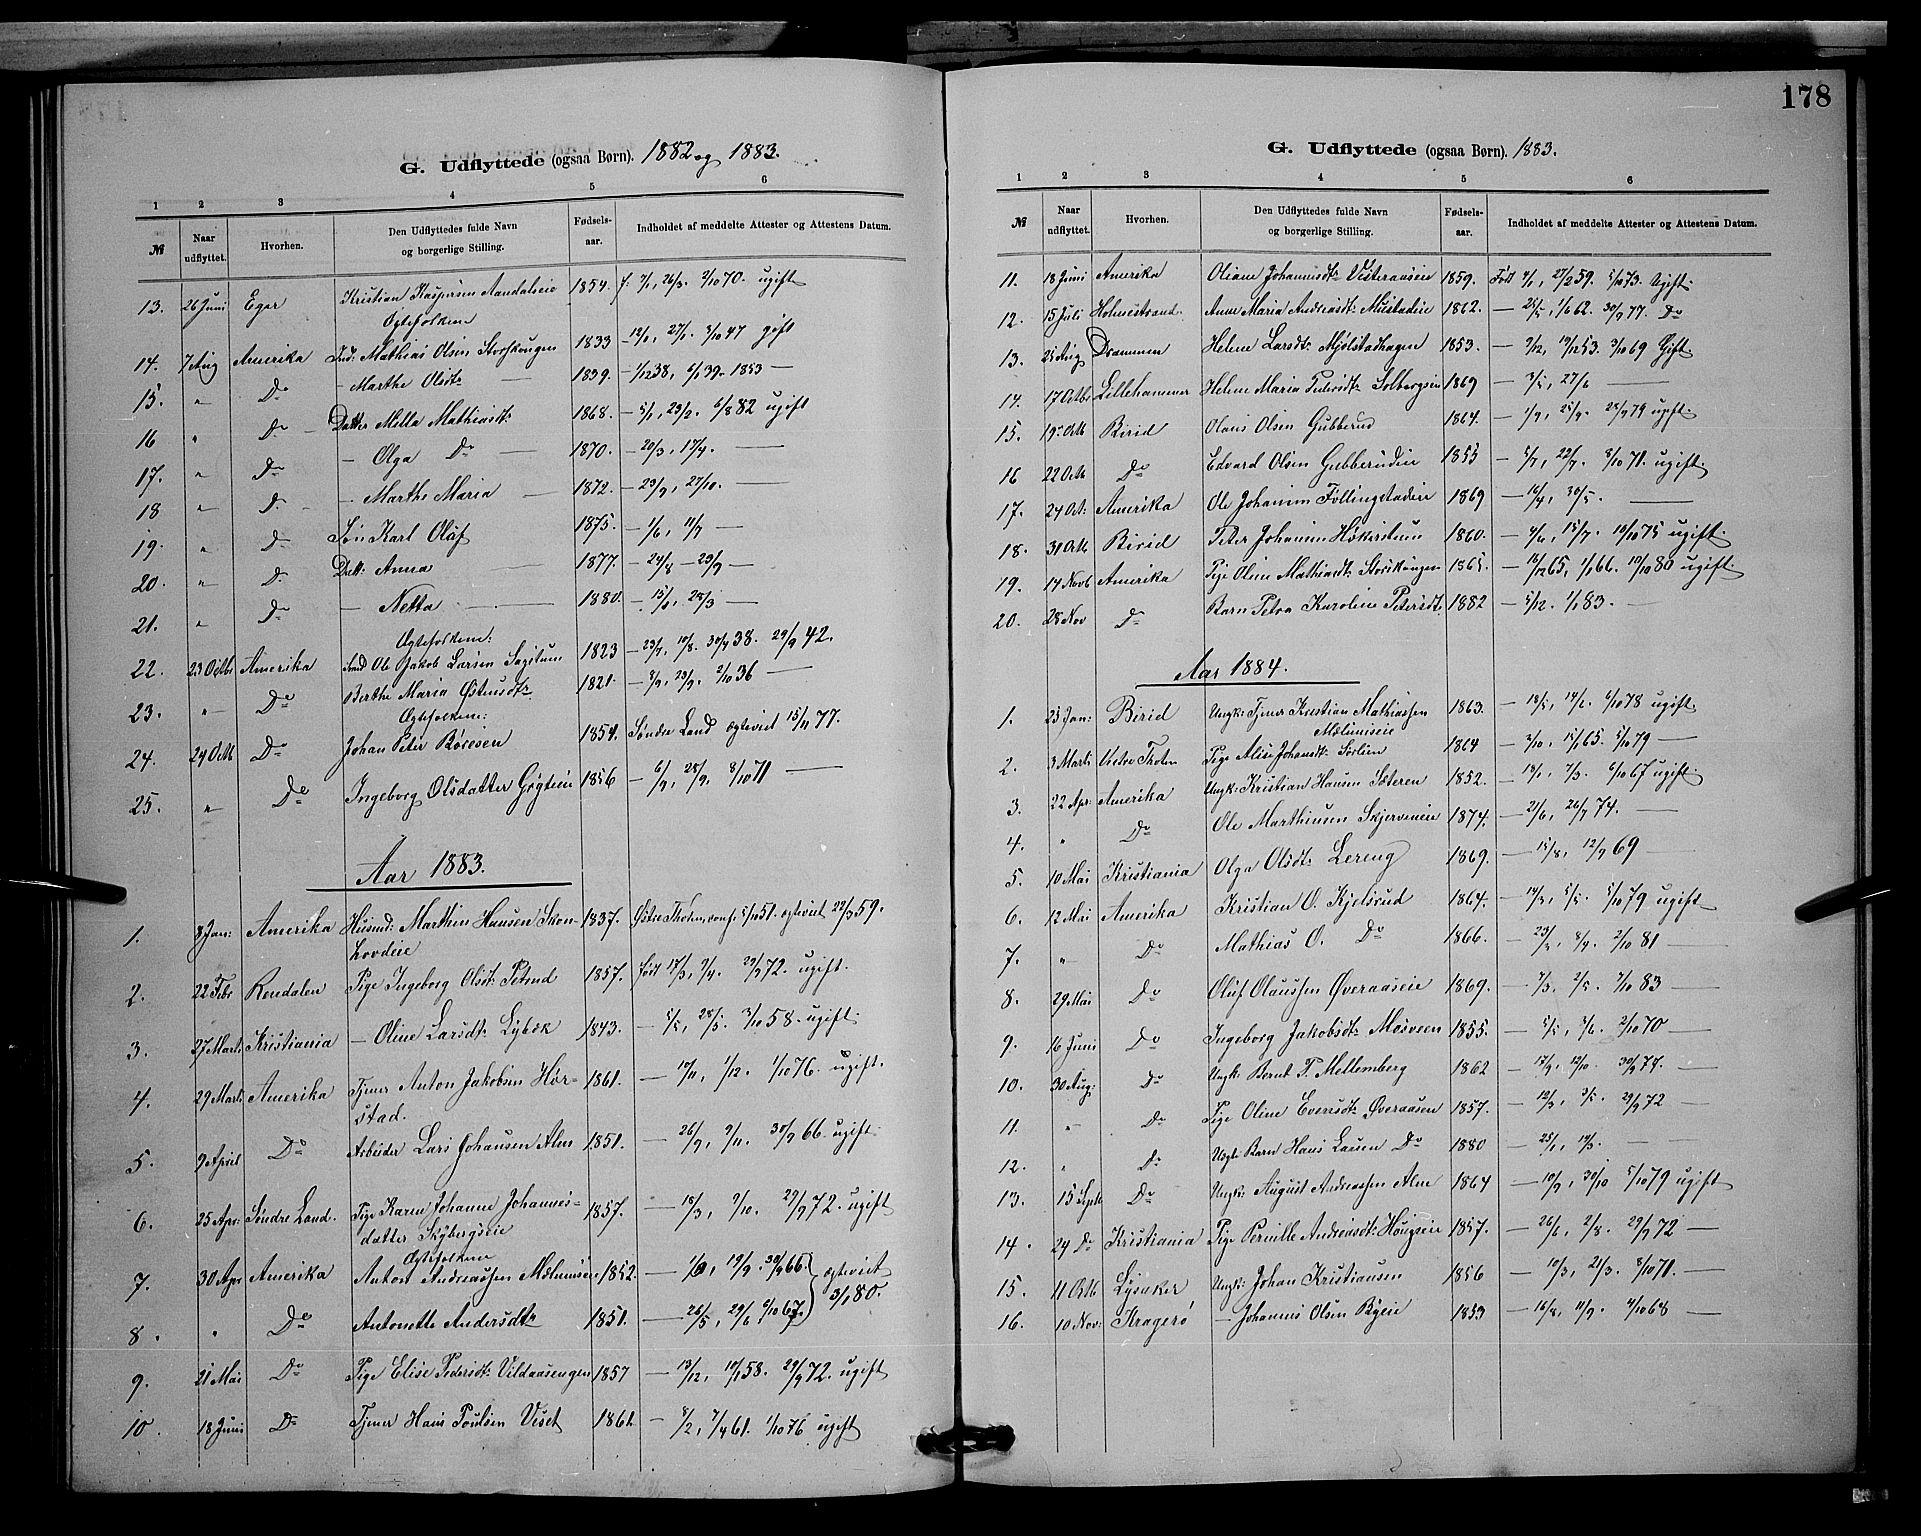 G. Udflyttede (ogsaa Børn). 1882 og 1883.
1 2 3 4 5 6
№ Naar udflyttet. Hvorhen. Den Udflyttedes fulde Navn og borgerlige Stilling. Fødsels-aar. Indholdet af meddelte Attester og Attestens Datum.
13. 26 Juni Eger Kristian Kaspersen Aandalseie 1854. f. 7/1, 26/3. 2/10 70. ugift
Ægtefolkene
14. 7 Aug Amerika Ind: Mathias Olsen Storskongen 1833 — 12/1, 27/1. 3/10 47 gift
15. " Do — Marthe Olsdtr — 1839. — 1/12 38, 6/1 39. 1853 —
16 " Do — Datter Mella Mathiasdtr 1868. — 5/1, 23/2. 6/8 82 ugift
17. " Do — Olga Do — 1870. — 20/3, 17/4. —
18 " Do — Marthe Maria — 1872. — 23/9, 27/10. —
19. " Do Søn Karl Oluf 1875. — 1/6, 11/7 —
20. " Do Datt: Anna — 1877. — 24/8 — 23/9 —
21. " Do — Netta — 1880. — 15/1, 28/3 —
Ægtefolkene:
22. 23 Octbr Amerika Ind Ole Jakob Larsen Sagstuen 1823 — 23/7, 10/8. 30/9 38. 29/9 42.
23. " Do Berthe Maria Østensdtr 1821. — 8/9, 23/9. 2/10 36 —
Ægtefolkene:
24. 24 Octb Do Johan Peter Børesen 1854. Søndre Land ægteviet 15/11 77.
25. " Do Ingeborg Olsdatter Gøgteien 1856 — 6/9, 28/9. 8/10 71 —
Aar 1883.
1. 8 Jan: Amerika Husmd: Marthin Hansen Skon- 1837. Østre Thoten, conf: 5/10 51. ægteviet 22/3 59.
Lovdeie
2. 22 Febr Rendalen Pige Ingeborg Olsdtr Petrud 1857. født 17/3, 9/4. 29/9 72. ugift.
3. 27 Marts Kristiania — Oline Larsdtr Lybæk 1843. — 5/5, 28/5. 3/10 58. ugift.
4. 29 Marts Amerika Tjener Anton Jakobsen Hør- 1861. — 10/11, 1/12. 1/10 76. ugift.
stad.
5. 9 April Do Arbeider Lars Johansen Alm 1851. — 26/9, 9/11. 30/9 66. ugift.
6. 25 Apr: Søndre Land. Pige Karen Johanne Johannes- 1857. — 18/3, 9/10. 29/9 72. ugift
datter Skybergseie
Ægtefolkene
7. 30 Apr Amerika Anton Andreassen Mælumseie 1852. — 1/9, 19/9. 30/9 66. ægteviet
8. " Do Antonette Andersdtr 1851. — 26/5, 29/6 6/10 67. 3/1 80.
9. 21 Mai Do Pige Elise Pedersdtr Vildaasengen 1857 — 13/12, 10/1 58. 29/9 72. ugift
10. 18 Juni Do Tjener Hans Poulsen Viset 1861. — 8/2, 7/4 61. 1/10 76 ugift
178
G. Udflyttede (ogsaa Børn). 1883.
1 2 3 4 5 6
№ Naar udflyttet. Hvorhen. Den Udflyttedes fulde Navn og borgerlige Stilling. Fødsels-aar. Indholdet af meddelte Attester og Attestens Datum.
11. 18 Juni Amerika Oliane Johannisdtr Vesteraaseie 1859. Født 9/1, 27/2 59. 5/10 73. Ugift.
12. 15 Juli Holmestrand Anne Maria Andreasdtr Mustadeie 1862. — 25/5, 1/6 62. 30/9 77. Do
13. 25 Aug Drammen Helene Larsdtr Mjølstadhagen 1853. — 9/12, 19/12 53. 3/10 69 Gift.
14. 17 Octbr Lillehammer Helene Maria Pedersdtr Solbergseie 1869 — 3/5, 27/6 —
15. 19 Octb Birid Olaus Olsen Gubberud 1864. — 1/9, 25/9. 28/9 79 ugift.
16 22 Octb Do Edvard Olsen Gubberudeie 1855 — 5/7, 22/7. 8/10 71. ugift.
17. 24 Oct: Amerika Ole Johansen Føllingstadeie 1869 — 16/4, 30/5. —
18. 31 Octb Birid Peter Johansen Høkerstuen 1860. — 4/6, 15/7. 10/10 75 ugift.
19. 14 Novb Amerika Pige Oline Mathiasdtr Storskongen 1865. — 16/12 65, 1/1 66. 10/10 80 ugift.
20. 28 Nov Do Barn Petra Karoline Petersdtr 1882 — 5/12. 1/1 83. —
Aar 1884.
1. 25 Jan: Birid Ungk: Tjener Kristian Mathiassen 1863. — 18/5, 14/6. 6/10 78 ugift.
Mælumseie
2. 3 Marts Vestre Thoten Pige Alise Johansdtr Sørlien 1864 — 3/10, 15/1 65. 5/10 79 —
3. 22 Apr: Amerika Ungk: Kristian Hansen Sæteren 1852. — 18/1, 7/3. 6/10 67 ugift.
4. " Do Ole Marthinsen Skjerveneie 1874. — 21/6, 26/7 74. —
5. 10 Mai Kristiania Olga Olsdtr Lereng 1869. — 15/8, 12/9 69 —
6. 12 Mai Amerika Kristian O. Kjelsrud 1864. — 14/3, 5/5. 5/10 79 ugift
7. " Do Mathias O. Do 1866. — 23/3, 8/4. 2/10 81 —
8. 29 Mai Do Oluf Olaussen Øveraaseie 1869. — 7/3, 2/5. 7/10 83 —
9. 16 Juni Do Ingeborg Jakobsdtr Mosveen 1855. — 5/5, 3/6. 2/10 70 —
10. 30 Aug: Do Ungk: Bernt T. Mellemberg 1862 — 17/9, 12/10. 30/9 77. —
11. " Do Pige Oline Evensdtr Øveraasen 1857. — 12/3, 3/5. 29/9 72 —
12. " Do Uægte Barn Hans Lausen Do 1880 — 25/1, 19/3. —
13. 15 Septb Do Ungk: August Andreassen Alm 1864 — 10/9, 30/10 5/10 79 ugift
14. 24 Do Kristiania Pige Pernille Andreasdtr Haugseie 1857. — 26/6, 2/8. 29/9 72 —
15. 11 Octb Lysaker Ungk: Johan Kristiansen 1856 — 10/3, 21/3. 8/10 71. —
16. 10 Nov: Kragerø — Johannes Olsen Byeie 1853 — 16/8, 11/9. 4/10 68 —